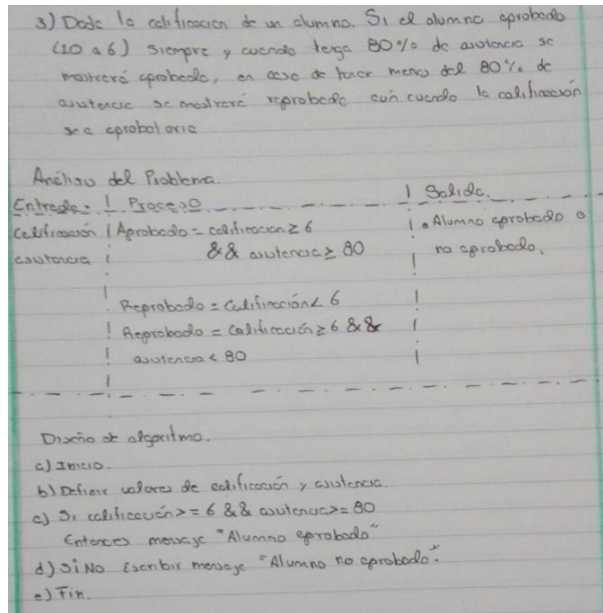 3) Dada la calificación de un alumno. Si el alumno aprobado
(10 a 6) siempre y cuando tenga 80% de asistencia se
mostrará aprobado, en caso de tener menos del 80% de
asistencia se mostrará reprobado aún cuando la calificación
sea aprobatoria
Análisis del Problema.
Entrada. Proceso Salida.
Calificación Aprobado = calificacion ≥ 6 • Alumno aprobado o
asistencia && asistencia ≥ 80 no aprobado.
Reprobado = Calificación < 6
Reprobado = Calificación ≥ 6 &&
asistencia < 80
Diseño de algoritmo.
a) Inicio.
b) Definir valores de calificación y asistencia.
c) Si calificación >= 6 && asistencia >= 80
Entonces mensaje "Alumno aprobado"
d) Si No Escribir mensaje "Alumno no aprobado".
e) Fin.